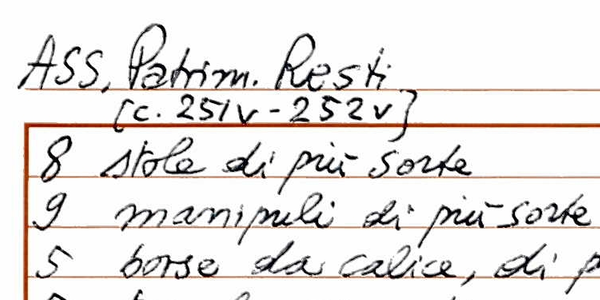 ASS, Patrim. Resti
[c. 251v - 252v]
8 stole di più sorte
9 manipuli di più sorte
5 borse da calice, di p